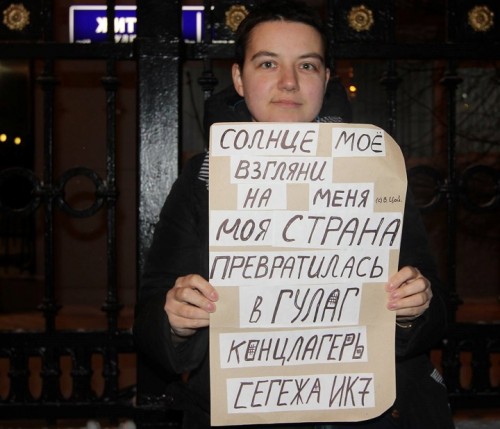 СОЛНЦЕ МОЁ
ВЗГЛЯНИ
НА МЕНЯ
МОЯ СТРАНА
ПРЕВРАТИЛАСЬ
В ГУЛАГ
КОНЦЛАГЕРЬ
СЕГЕЖА ИК7